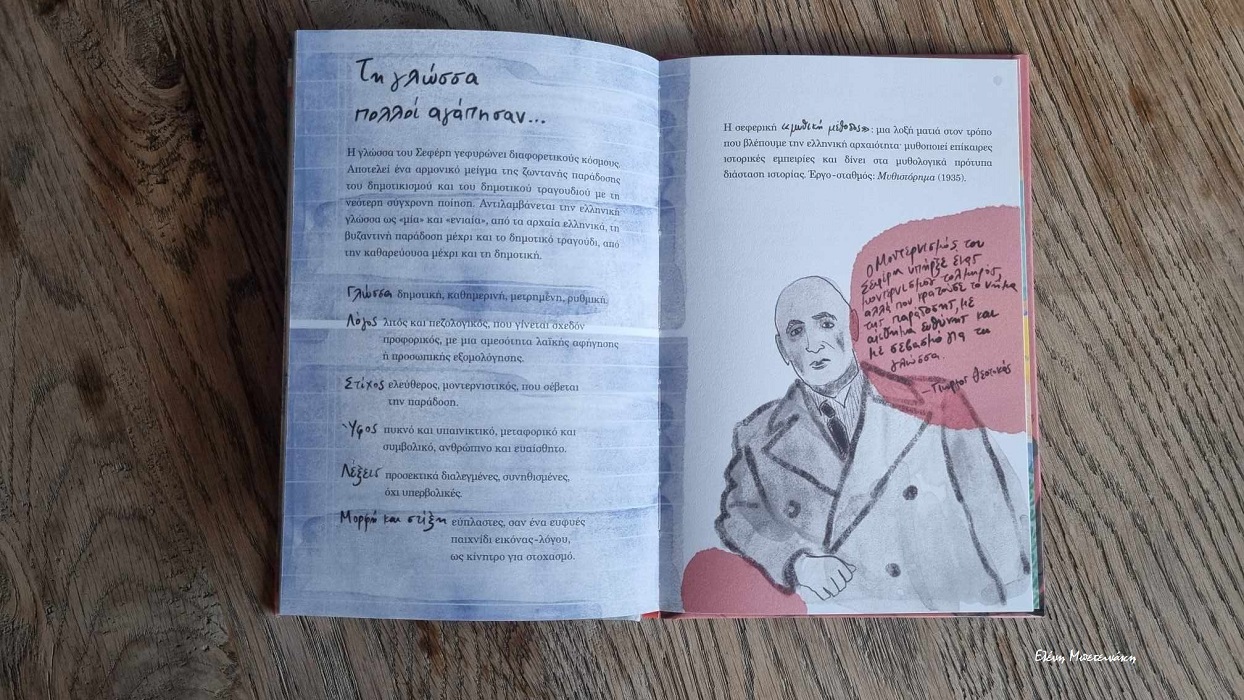 Τη γλώσσα
πολλοί αγάπησαν...
Η γλώσσα του Σεφέρη γεφυρώνει διαφορετικούς κόσμους.
Αποτελεί ένα αρμονικό μείγμα της ζωντανής παράδοσης
του δημοτικισμού και του δημοτικού τραγουδιού με τη
νεότερη σύγχρονη ποίηση. Αντιλαμβάνεται την ελληνική
γλώσσα ως «μία» και «ενιαία», από τα αρχαία ελληνικά, τη
βυζαντινή παράδοση μέχρι και το δημοτικό τραγούδι, από
την καθαρεύουσα μέχρι και τη δημοτική.
Γλώσσα δημοτική, καθημερινή, μετρημένη, ρυθμική.
Λόγος λιτός και πεζολογικός, που γίνεται σχεδόν
προφορικός, με μια αμεσότητα λαϊκής αφήγησης
ή προσωπικής εξομολόγησης.
Στίχος ελεύθερος, μοντερνιστικός, που σέβεται
την παράδοση.
Ύφος πυκνό και υπαινικτικό, μεταφορικό και
συμβολικό, ανθρώπινο και ευαίσθητο.
Λέξεις προσεκτικά διαλεγμένες, συνηθισμένες,
όχι υπερβολικές.
Μορφή και στίξη εύπλαστες, σαν ένα ευφυές
παιχνίδι εικόνας-λόγου,
ως κίνητρο για στοχασμό.
Η σεφερική «μυθική μέθοδος»: μια λοξή ματιά στον τρόπο
που βλέπουμε την ελληνική αρχαιότητα· μυθοποιεί επίκαιρες
ιστορικές εμπειρίες και δίνει στα μυθολογικά πρότυπα
διάσταση ιστορίας. Έργο-σταθμός: Μυθιστόρημα (1935).
Ο Μοντερνισμός του
Σεφέρη υπήρξε ένας
μοντερνισμός τολμηρός,
αλλά που κρατούσε το νήμα
της παράδοσης, με
αίσθημα ευθύνης και
με σεβασμό για τη
γλώσσα.
—Γιώργος Θεοτοκάς
Ελένη Μπετεινάκη